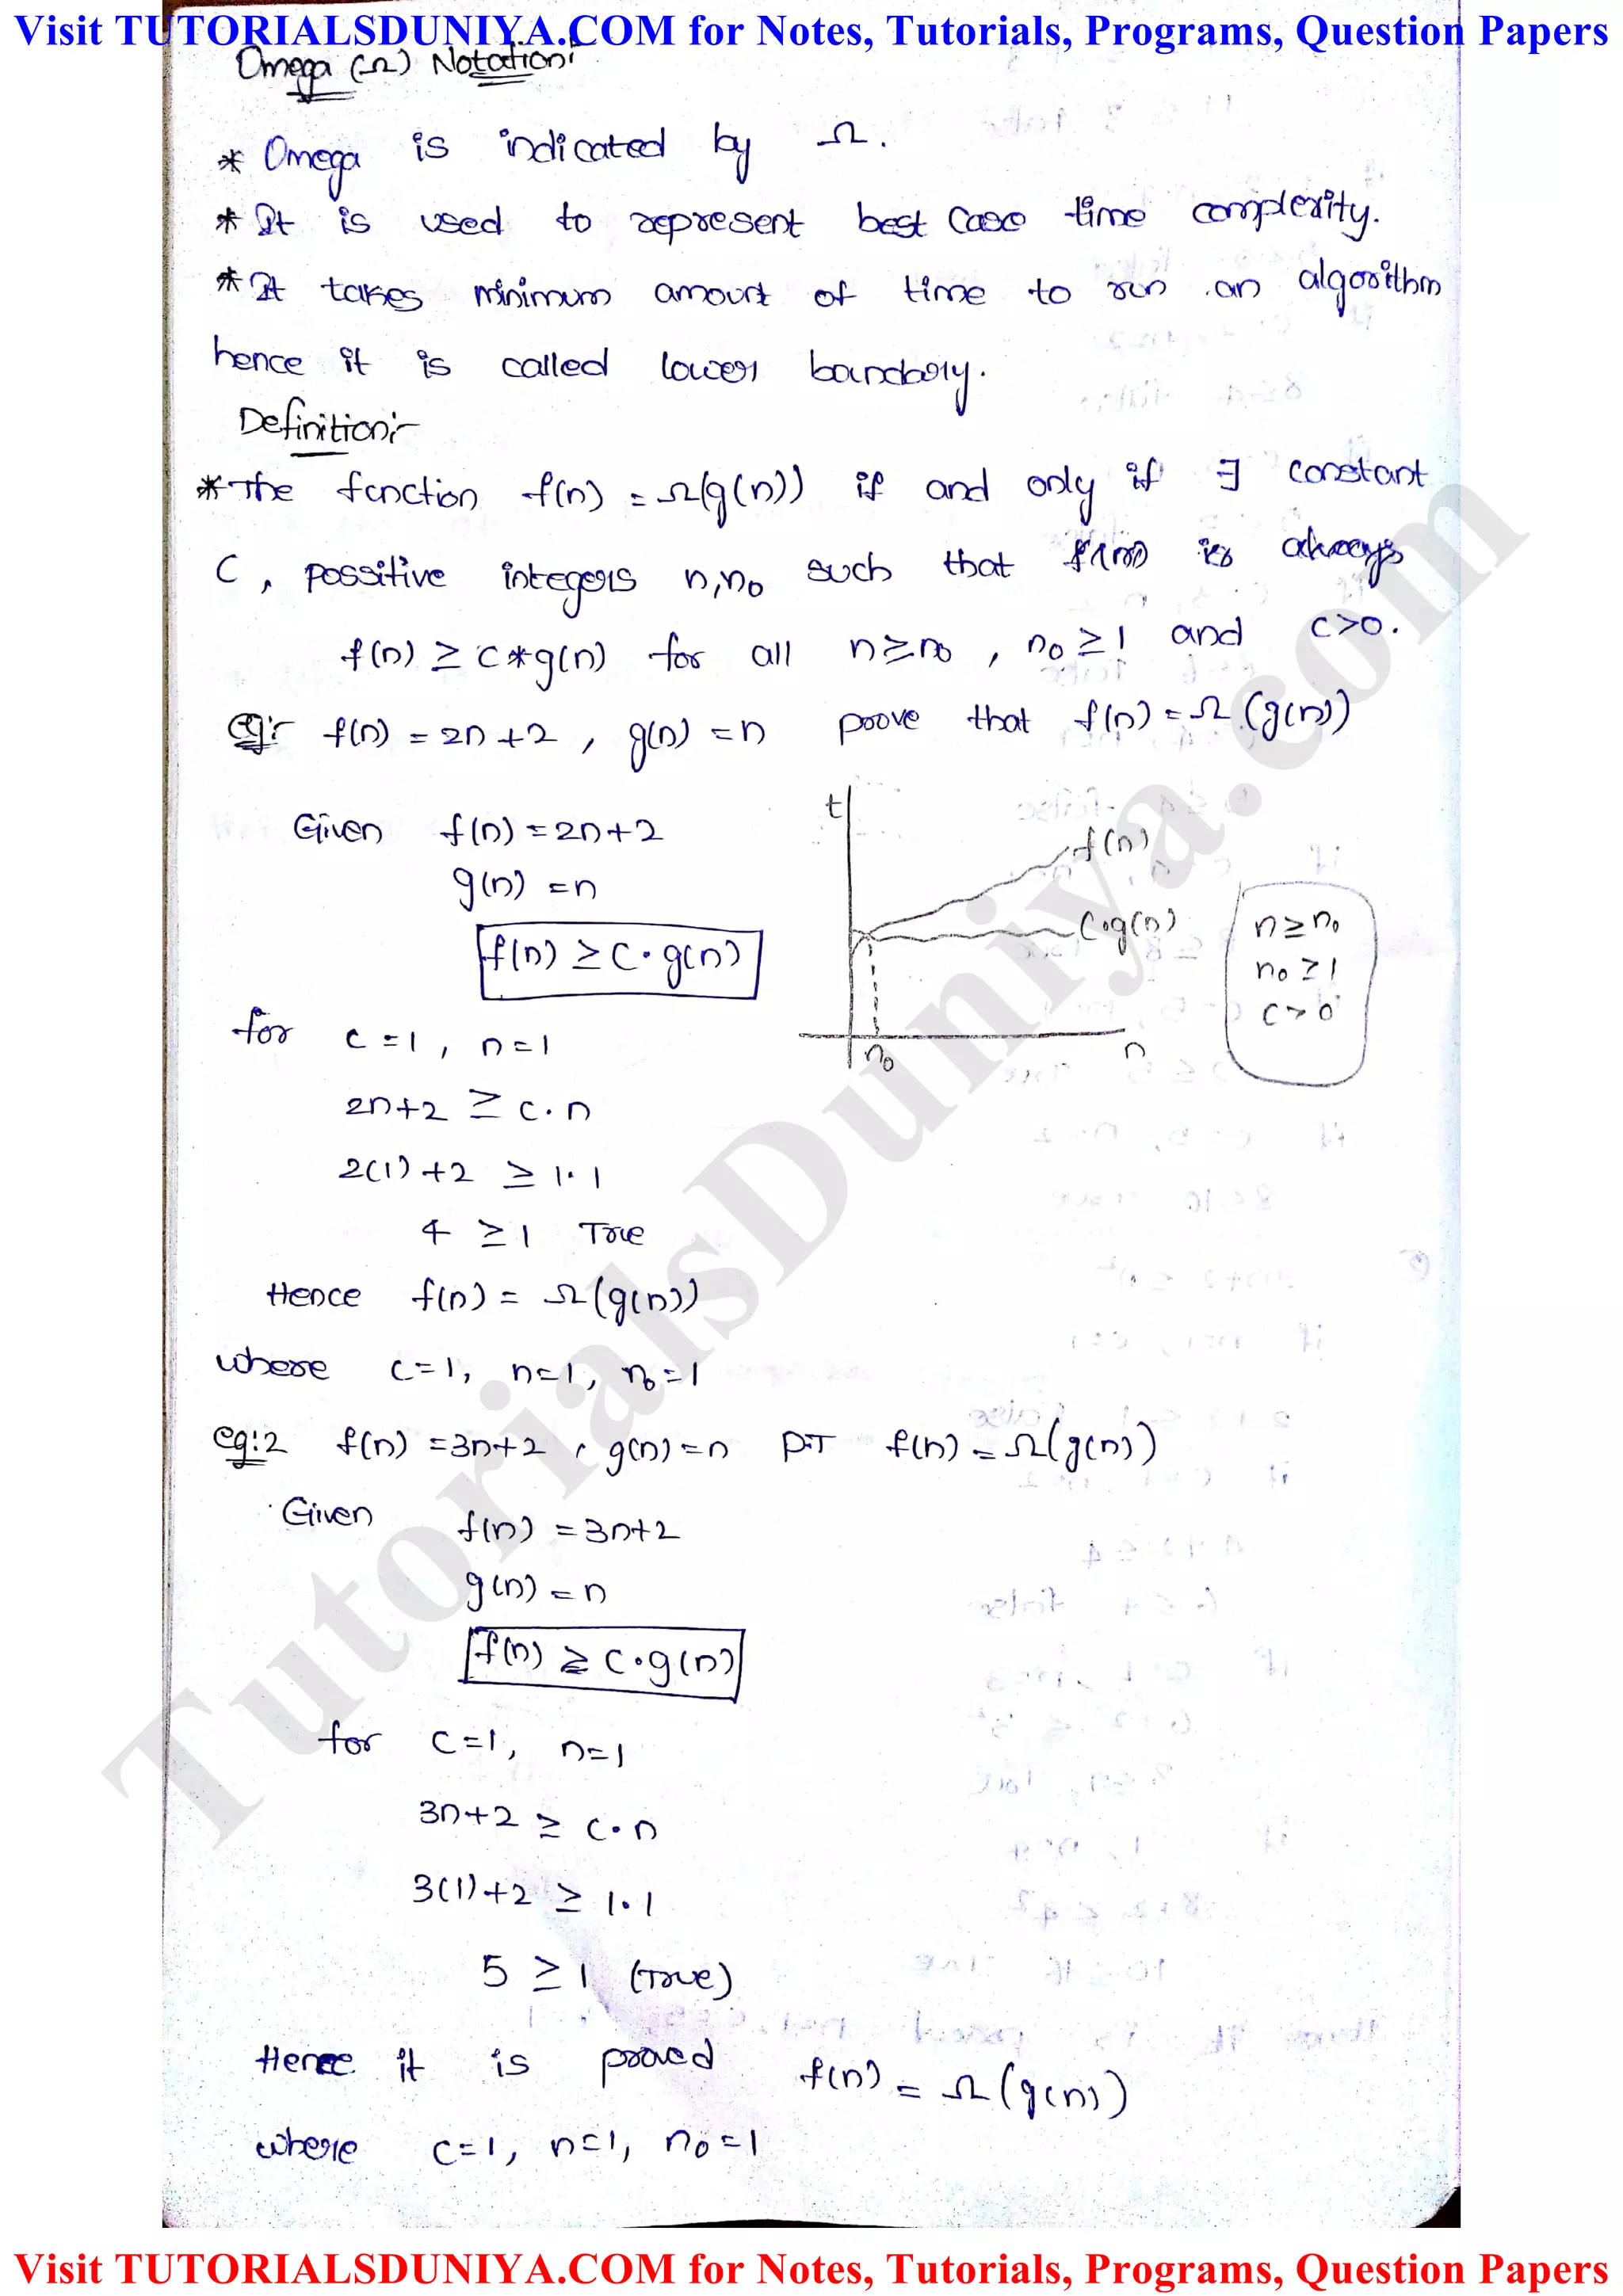 Visit TUTORIALSDUNIYA.COM for Notes, Tutorials, Programs, Question Papers
Omega (Ω) Notation:-
* Omega is indicated by Ω.
* It is used to represent best case time complexity.
* It takes minimum amount of time to run an algorithm
hence it is called lower boundary.
Definition:-
* The function f(n) = Ω(g(n)) if and only if ∃ constant
C, possitive integers n,n₀ such that f(n) is always
f(n) ≥ C*g(n) for all n≥n₀, n₀≥1 and c>0.
eg:- f(n) = 2n+2, g(n) = n prove that f(n) = Ω(g(n))
Given f(n) = 2n+2
g(n) = n
f(n) ≥ C·g(n)
t
f(n)
C·g(n)
n₀
n
n≥n₀
n₀≥1
C>0
for c=1, n=1
2n+2 ≥ c·n
2(1)+2 ≥ 1·1
4 ≥ 1 True
Hence f(n) = Ω(g(n))
where c=1, n=1, n₀=1
eg:2 f(n) = 3n+2, g(n) = n P.T f(n) = Ω(g(n))
Given f(n) = 3n+2
g(n) = n
f(n) ≥ C·g(n)
for c=1, n=1
3n+2 ≥ c·n
3(1)+2 ≥ 1·1
5 ≥ 1 (True)
Hence it is proved f(n) = Ω(g(n))
where c=1, n=1, n₀=1
TutorialsDuniya.com
Visit TUTORIALSDUNIYA.COM for Notes, Tutorials, Programs, Question Papers